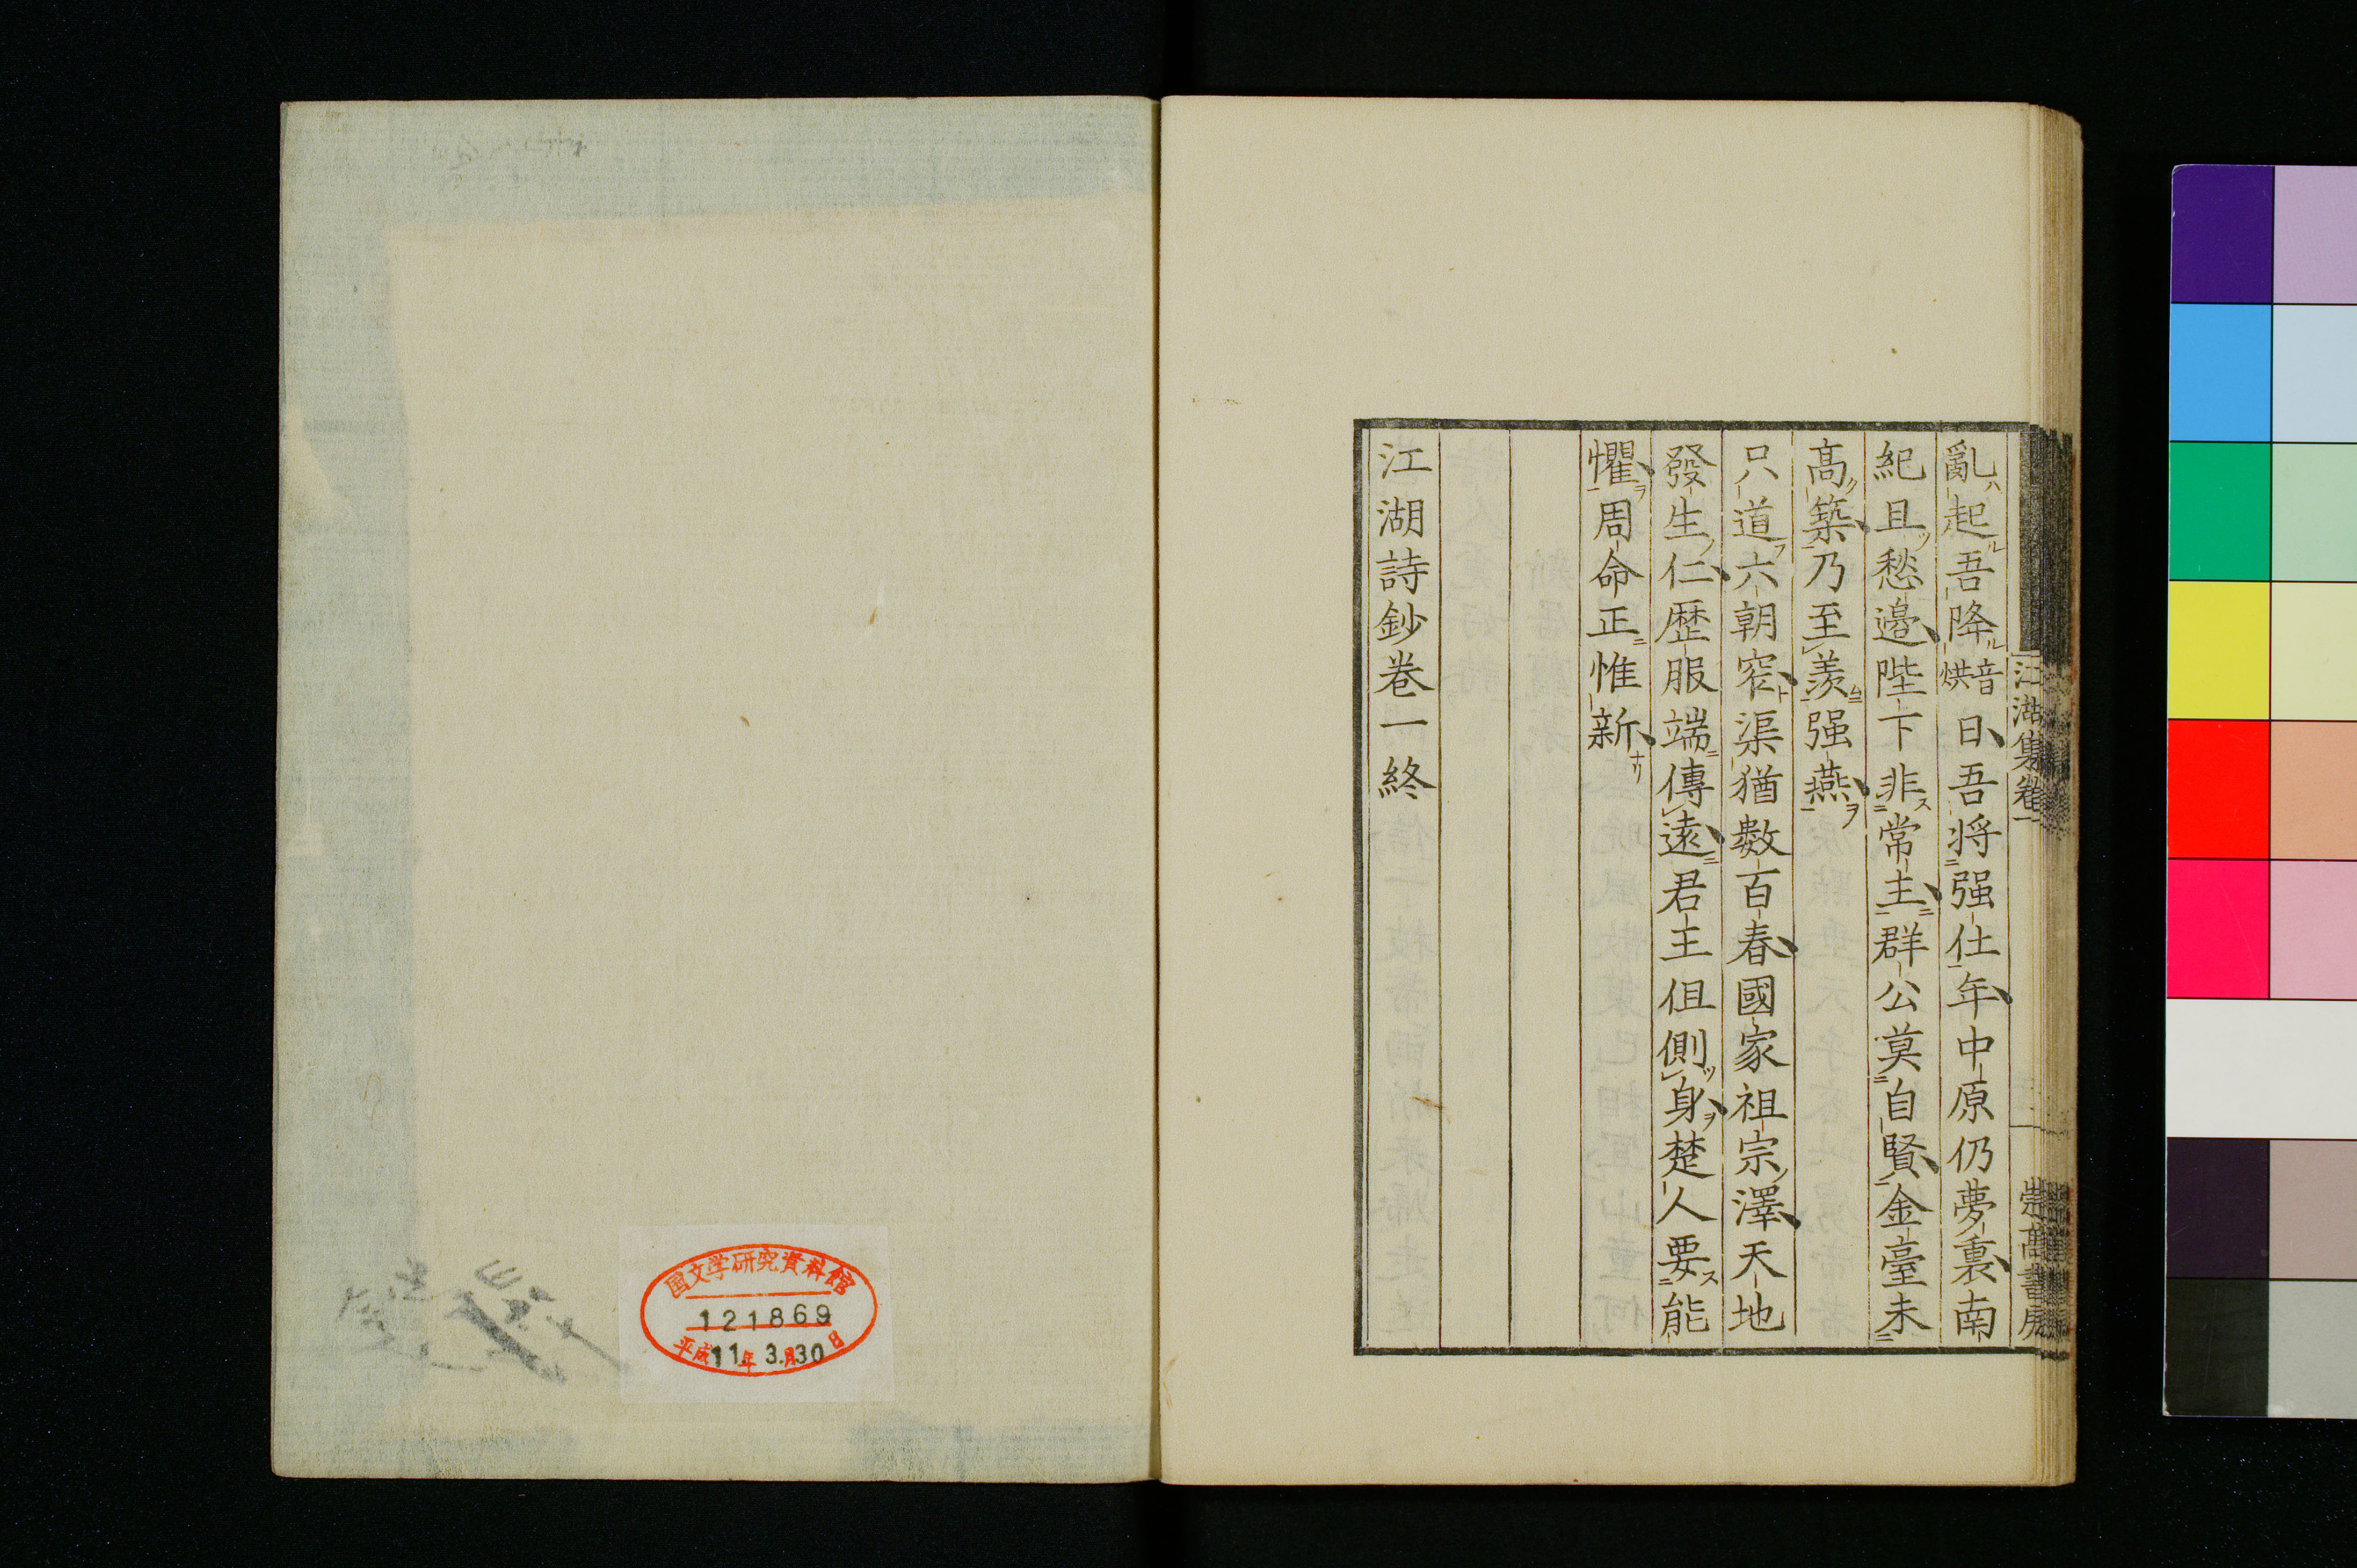 亂起吾降音烘日吾將强仕年中原仍夢裏南
紀且愁邉陛下非常主群公莫自賢金臺未
髙築乃至羨强燕
只道六朝窄渠猶數百春國家祖宗澤天地
發生仁歴服端傳遠君王但側身楚人要能
懼周命正惟新
江湖詩鈔卷一終
江湖集卷一
嵩髙書房
国文学研究資料館
121869
平成11年3.月30日